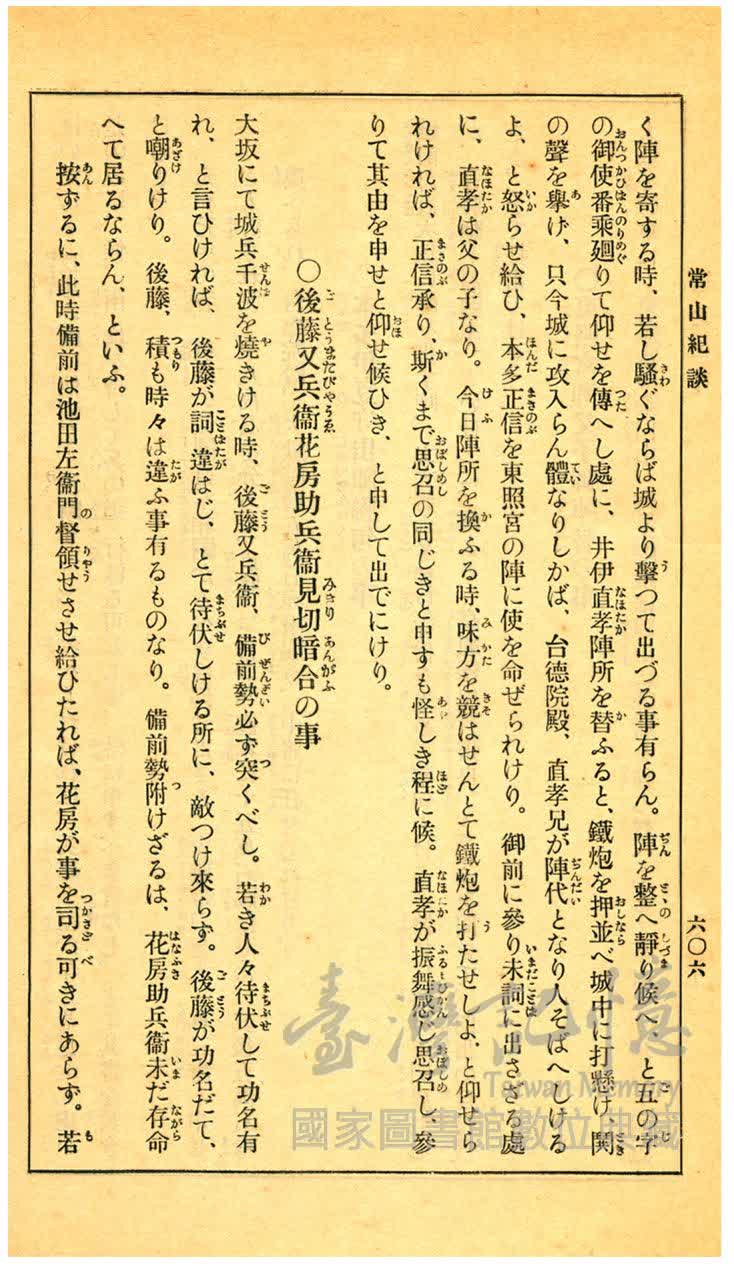 常山紀談
六〇六
く陣を寄する時、若し騷ぐならば城より擊つて出づる事有らん。陣を整へ靜り候へ、と五の字
の御使番乘廻りて仰せを傳へし處に、井伊直孝陣所を替ふると、鐵炮を押並べ城中に打懸け、鬨
の聲を擧げ、只今城に攻入らん體なりしかば、台德院殿、直孝兄が陣代となり人そばへしける
よ、と怒らせ給ひ、本多正信を東照宮の陣に使を命ぜられけり。御前に參り未詞に出さざる處
に、直孝は父の子なり。今日陣所を換ふる時、味方を競はせんとて鐵炮を打たせしよ、と仰せら
れければ、正信承り、斯くまで思召の同じきと申すも怪しき程に候。直孝が振舞感じ思召し、參
りて其由を申せと仰せ候ひき、と申して出でにけり。
〇後藤又兵衞花房助兵衞見切暗合の事
大坂にて城兵千波を燒きける時、後藤又兵衞、備前勢必ず突くべし。若き人々待伏して功名有
れ、と言ひければ、後藤が詞違はじ、とて待伏しける所に、敵つけ來らず。後藤が功名だて、
と嘲りけり。後藤、積も時々は違ふ事有るものなり。備前勢附けざるは、花房助兵衞未だ存命
へて居るならん、といふ。
按ずるに、此時備前は池田左衞門督領せさせ給ひたれば、花房が事を司る可きにあらず。若
臺灣記憶
Taiwan Memory
國家圖書館數位典藏